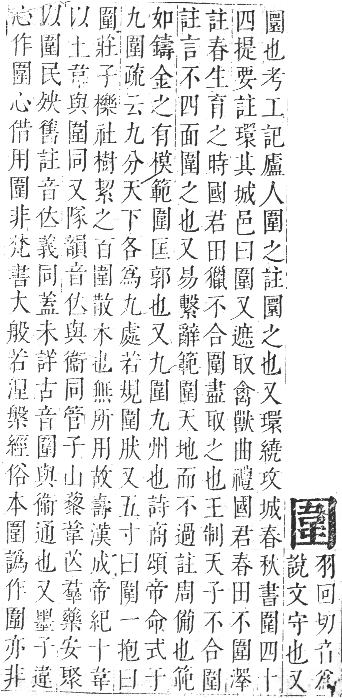 圍
羽回切音爲
說文守也又
圜也考工記廬人圍之註圜之也又環繞攻城春秋書圍四十
四提要註環其城邑曰圍又遮取禽獸曲禮國君春田不圍澤
註春生育之時國君田獵不合圍盡取之也王制天子不合圍
註言不四面圍之也又易繫辭範圍天地而不過註周備也範
如鑄金之有模範圍匡郭也又九圍九州也詩商頌帝命式于
九圍疏云九分天下各爲九處若規圍狀又五寸曰圍一抱曰
圍莊子櫟社樹絜之百圍散木也無所用故壽漢成帝紀十韋
以上韋與圍同又隊韻音位與衞同管子山藜葦芒羣藥安聚
以圍民殃舊註音位義同蓋未詳古音圍與衞通也又墨子違
心作圍心借用圍非梵書大般若涅槃經俗本圍譌作圍亦非